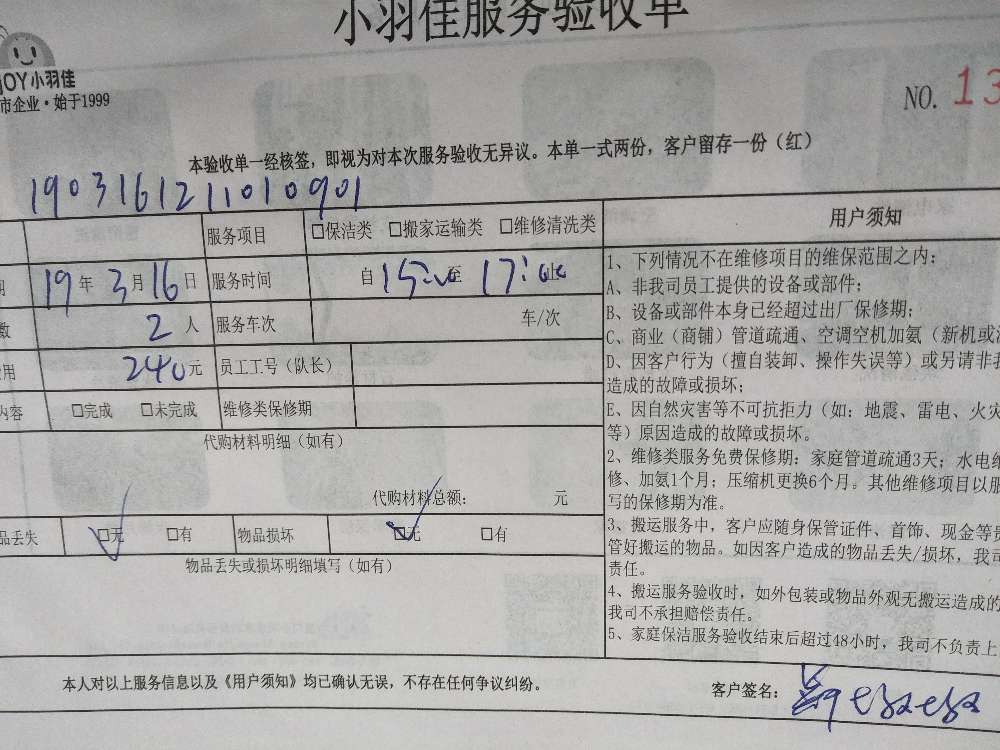 小羽佳服务验收单
JOY小羽佳
市企业·始于1999
NO. 13
本验收单一经核签，即视为对本次服务验收无异议。本单一式两份，客户留存一份（红）
190316121101090​1
服务项目 □保洁类 □搬家运输类 □维修清洗类
19年3月16日 服务时间 自15:00至17:00止
数 2人 服务车次 车/次
用 240元 员工工号（队长）
内容 □完成 □未完成 维修类保修期
代购材料明细（如有）
代购材料总额： 元
品丢失 □无 □有 物品损坏 □无 □有
物品丢失或损坏明细填写（如有）
用户须知
1、下列情况不在维修项目的维保范围之内：
A、非我司员工提供的设备或部件；
B、设备或部件本身已经超过出厂保修期；
C、商业（商铺）管道疏通、空调空机加氨（新机或
D、因客户行为（擅自装卸、操作失误等）或另请非我
造成的故障或损坏；
E、因自然灾害等不可抗拒力（如：地震、雷电、火灾
等）原因造成的故障或损坏。
2、维修类服务免费保修期：家庭管道疏通3天；水电维
修、加氨1个月；压缩机更换6个月。其他维修项目以服
写的保修期为准。
3、搬运服务中，客户应随身保管证件、首饰、现金等贵
管好搬运的物品。如因客户造成的物品丢失/损坏，我司
责任。
4、搬运服务验收时，如外包装或物品外观无搬运造成的
我司不承担赔偿责任。
5、家庭保洁服务验收结束后超过48小时，我司不负责上
本人对以上服务信息以及《用户须知》均已确认无误，不存在任何争议纠纷。
客户签名：